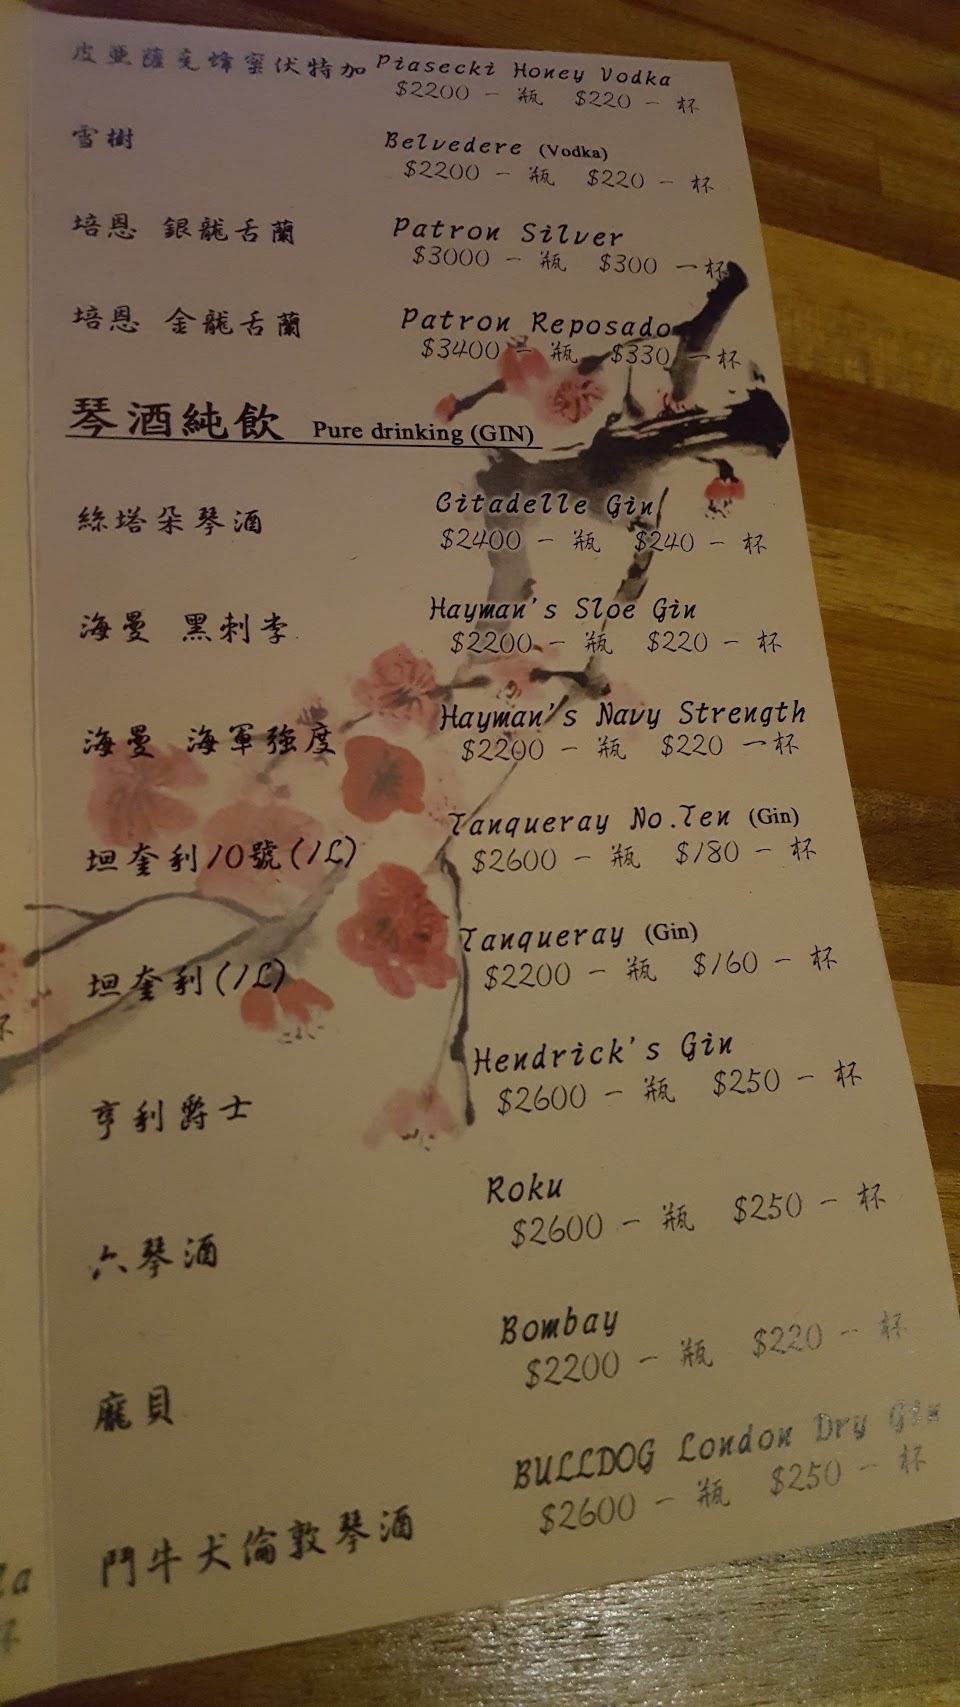 皮亞薩克蜂蜜伏特加 Piasecki Honey Vodka
$2200 一 瓶 $220 一 杯
雪樹 Belvedere (Vodka)
$2200 一 瓶 $220 一 杯
培恩 銀龍舌蘭 Patron Silver
$3000 一 瓶 $300 一杯
培恩 金龍舌蘭 Patron Reposado
$3400 一 瓶 $330 一杯
琴酒純飲 Pure drinking (GIN)
絲塔朵琴酒 Citadelle Gin
$2400 一 瓶 $240 一 杯
海曼 黑刺李 Hayman's Sloe Gin
$2200 一 瓶 $220 一 杯
海曼 海軍強度 Hayman's Navy Strength
$2200 一 瓶 $220 一杯
坦奎利10號(1L) Tanqueray No.Ten (Gin)
$2600 一 瓶 $180 一 杯
坦奎利(1L) Tanqueray (Gin)
$2200 一 瓶 $160 一 杯
亨利爵士 Hendrick's Gin
$2600 一 瓶 $250 一 杯
六琴酒 Roku
$2600 一 瓶 $250 一 杯
龐貝 Bombay
$2200 一 瓶 $220 一 杯
鬥牛犬倫敦琴酒 BULLDOG London Dry Gin
$2600 一 瓶 $250 一 杯